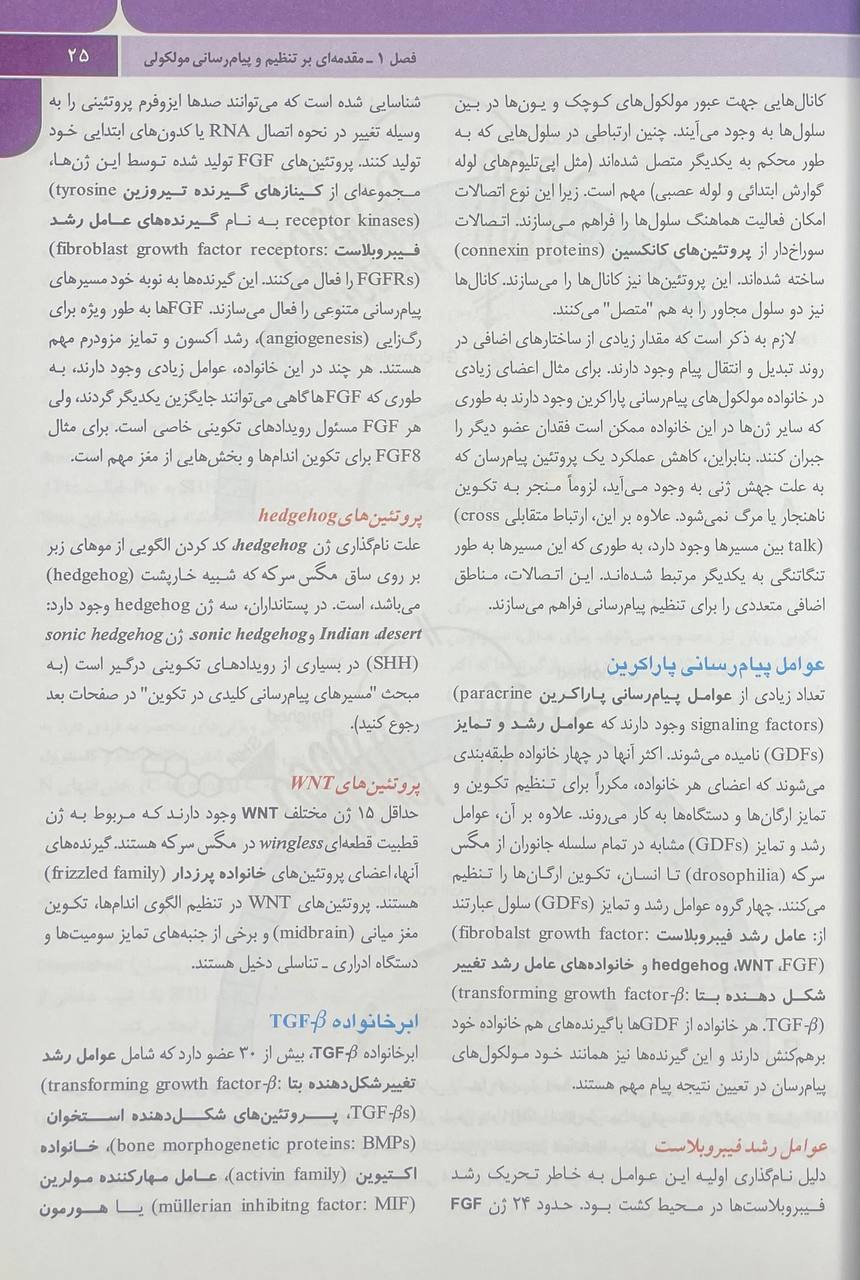 فصل ۱ ـ مقدمه‌ای بر تنظیم و پیام‌رسانی مولکولی
۲۵
کانال‌هایی جهت عبور مولکول‌های کوچک و یون‌ها در بین
سلول‌ها به وجود می‌آیند. چنین ارتباطی در سلول‌هایی که به
طور محکم به یکدیگر متصل شده‌اند (مثل اپی‌تلیوم‌های لوله
گوارش ابتدائی و لوله عصبی) مهم است. زیرا این نوع اتصالات
امکان فعالیت هماهنگ سلول‌ها را فراهم می‌سازند. اتصالات
سوراخ‌دار از پروتئین‌های کانکسین (connexin proteins)
ساخته شده‌اند. این پروتئین‌ها نیز کانال‌ها را می‌سازند. کانال‌ها
نیز دو سلول مجاور را به هم "متصل" می‌کنند.
لازم به ذکر است که مقدار زیادی از ساختارهای اضافی در
روند تبدیل و انتقال پیام وجود دارند. برای مثال اعضای زیادی
در خانواده مولکول‌های پیام‌رسانی پاراکرین وجود دارند به طوری
که سایر ژن‌ها در این خانواده ممکن است فقدان عضو دیگر را
جبران کنند. بنابراین، کاهش عملکرد یک پروتئین پیام‌رسان که
به علت جهش ژنی به وجود می‌آید، لزوماً منجر به تکوین
ناهنجار یا مرگ نمی‌شود. علاوه بر این، ارتباط متقابلی (cross
talk) بین مسیرها وجود دارد، به طوری که این مسیرها به طور
تنگاتنگی به یکدیگر مرتبط شده‌اند. این اتصالات، مناطق
اضافی متعددی را برای تنظیم پیام‌رسانی فراهم می‌سازند.
عوامل پیام‌رسانی پاراکرین
تعداد زیادی از عوامل پیام‌رسانی پاراکرین (paracrine
signaling factors) وجود دارند که عوامل رشد و تمایز
(GDFs) نامیده می‌شوند. اکثر آنها در چهار خانواده طبقه‌بندی
می‌شوند که اعضای هر خانواده، مکرراً برای تنظیم تکوین و
تمایز ارگان‌ها و دستگاه‌ها به کار می‌روند. علاوه بر آن، عوامل
رشد و تمایز (GDFs) مشابه در تمام سلسله جانوران از مگس
سرکه (drosophilia) تا انسان، تکوین ارگان‌ها را تنظیم
می‌کنند. چهار گروه عوامل رشد و تمایز (GDFs) سلول عبارتند
از: عامل رشد فیبروبلاست (fibrobalst growth factor:
FGF)، WNT، hedgehog و خانواده‌های عامل رشد تغییر
شکل دهنده بتا (transforming growth factor-β:
TGF-β). هر خانواده از GDFها با گیرنده‌های هم خانواده خود
برهم‌کنش دارند و این گیرنده‌ها نیز همانند خود مولکول‌های
پیام‌رسان در تعیین نتیجه پیام مهم هستند.
عوامل رشد فیبروبلاست
دلیل نام‌گذاری اولیه این عوامل به خاطر تحریک رشد
فیبروبلاست‌ها در محیط کشت بود. حدود ۲۴ ژن FGF
شناسایی شده است که می‌توانند صدها ایزوفرم پروتئینی را به
وسیله تغییر در نحوه اتصال RNA یا کدون‌های ابتدایی خود
تولید کنند. پروتئین‌های FGF تولید شده توسط این ژن‌ها،
مجموعه‌ای از کینازهای گیرنده تیروزین (tyrosine
receptor kinases) به نام گیرنده‌های عامل رشد
فیبروبلاست (fibroblast growth factor receptors:
FGFRs) را فعال می‌کنند. این گیرنده‌ها به نوبه خود مسیرهای
پیام‌رسانی متنوعی را فعال می‌سازند. FGFها به طور ویژه برای
رگ‌زایی (angiogenesis)، رشد آکسون و تمایز مزودرم مهم
هستند. هر چند در این خانواده، عوامل زیادی وجود دارند، به
طوری که FGFها گاهی می‌توانند جایگزین یکدیگر گردند، ولی
هر FGF مسئول رویدادهای تکوینی خاصی است. برای مثال
FGF8 برای تکوین اندام‌ها و بخش‌هایی از مغز مهم است.
پروتئین‌های hedgehog
علت نام‌گذاری ژن hedgehog، کد کردن الگویی از موهای زبر
بر روی ساق مگس سرکه که شبیه خارپشت (hedgehog)
می‌باشد، است. در پستانداران، سه ژن hedgehog وجود دارد:
Indian ،desert و sonic hedgehog. ژن sonic hedgehog
(SHH) در بسیاری از رویدادهای تکوینی درگیر است (به
مبحث "مسیرهای پیام‌رسانی کلیدی در تکوین" در صفحات بعد
رجوع کنید).
پروتئین‌های WNT
حداقل ۱۵ ژن مختلف WNT وجود دارند که مربوط به ژن
قطبیت قطعه‌ای wingless در مگس سرکه هستند. گیرنده‌های
آنها، اعضای پروتئین‌های خانواده پرزدار (frizzled family)
هستند. پروتئین‌های WNT در تنظیم الگوی اندام‌ها، تکوین
مغز میانی (midbrain) و برخی از جنبه‌های تمایز سومیت‌ها و
دستگاه ادراری ـ تناسلی دخیل هستند.
ابرخانواده TGF-β
ابرخانواده TGF-β، بیش از ۳۰ عضو دارد که شامل عوامل رشد
تغییرشکل‌دهنده بتا (transforming growth factor-β:
TGF-βs)، پروتئین‌های شکل‌دهنده استخوان
(bone morphogenetic proteins: BMPs)، خانواده
اکتیوین (activin family)، عامل مهارکننده مولرین
(müllerian inhibitng factor: MIF) یا هورمون